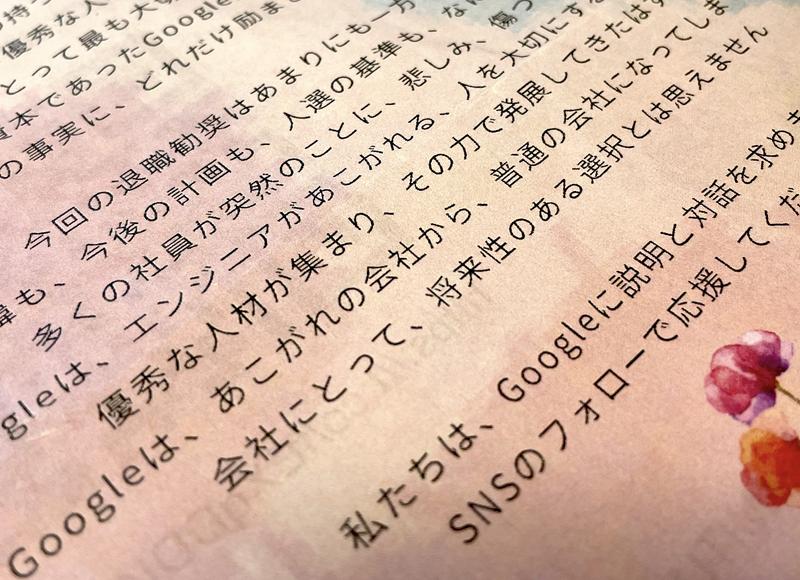 優秀な人
とって最も大切
資本であったGoogle
の事実に、どれだけ励ま
今回の退職勧奨はあまりにも一方
緯も、今後の計画も、人選の基準も、なに
多くの社員が突然のことに、悲しみ、傷つ
gleは、エンジニアがあこがれる、人を大切にする
優秀な人材が集まり、その力で発展してきたはず
Googleは、あこがれの会社から、普通の会社になってしま
会社にとって、将来性のある選択とは思えません
私たちは、Googleに説明と対話を求め
SNSのフォローで応援してくだ